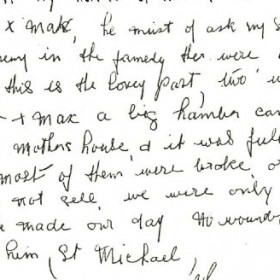 x Max, he must of ask my s
in the famedy ther were
this is the lovey part, two
+ max a big hamber can
Mothers house, & it was full
most of them were broke o
not sell, we were only
made our day no wound
him, St Michael,